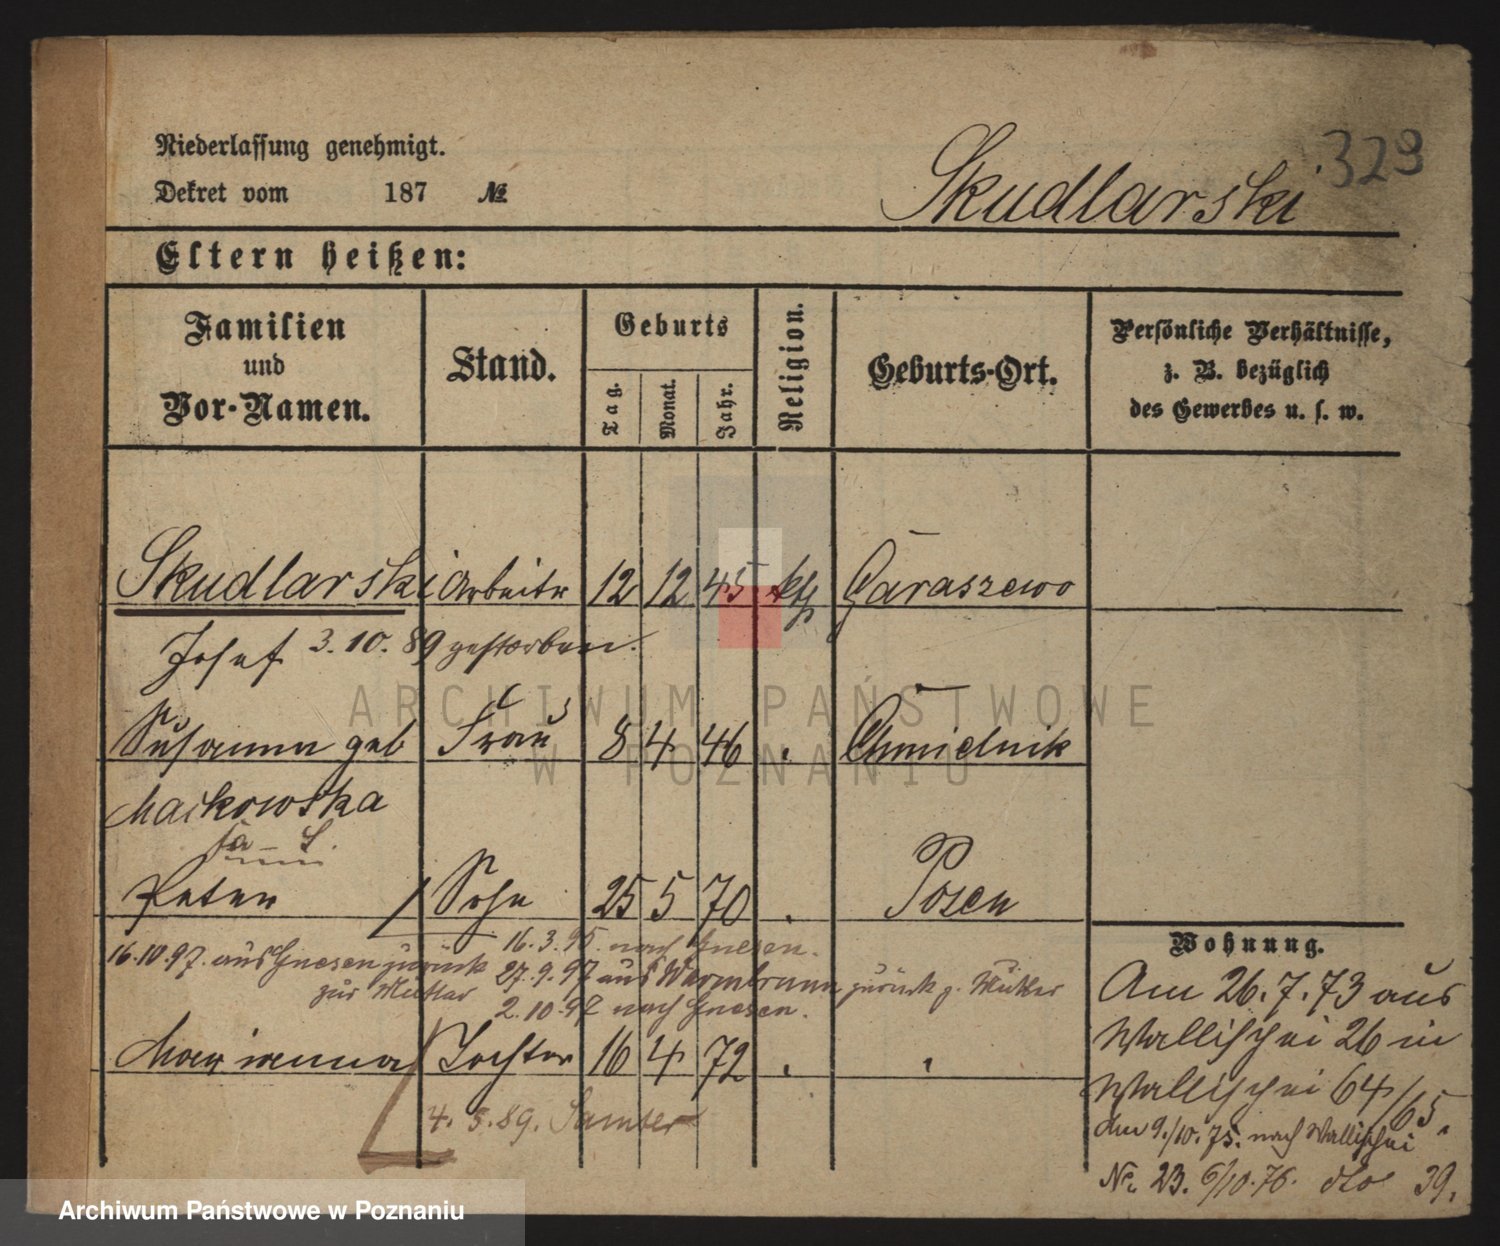 Niederlassung genehmigt.
Dekret vom 187 №
Skudlarski 329
Eltern heißen:
Familien und Vor-Namen.
Stand.
Geburts
Tag. Monat. Jahr.
Religion.
Geburts-Ort.
Persönliche Verhältnisse,
z. B. bezüglich
des Gewerbes u. s. w.
Skudlarski Arbeiter 12 12 45 kth Garaszewo
Josef 3.10.89 gestorben.
Susanna geb Frau 8 4 46 . Chmielnik
Maikowska
Peter Sohn 25 5 70 . Posen
16.3.95. nach Gnesen.
16.10.97. aus Gnesen zurück 27.9.97 aus Warmbrunn zurück z. Mutter
zur Mutter 2.10.97 nach Gnesen.
Marianna Tochter 16 4 72 . "
4. 5. 89. Samter
Wohnung.
Am 26.7.73 aus
Wallischei 26 in
Wallischei 64/65.
den 9./10.75. nach Wallischei
No. 23. 6/10.76. dto 39.
ARCHIWUM PAŃSTWOWE
W POZNANIU
Archiwum Państwowe w Poznaniu